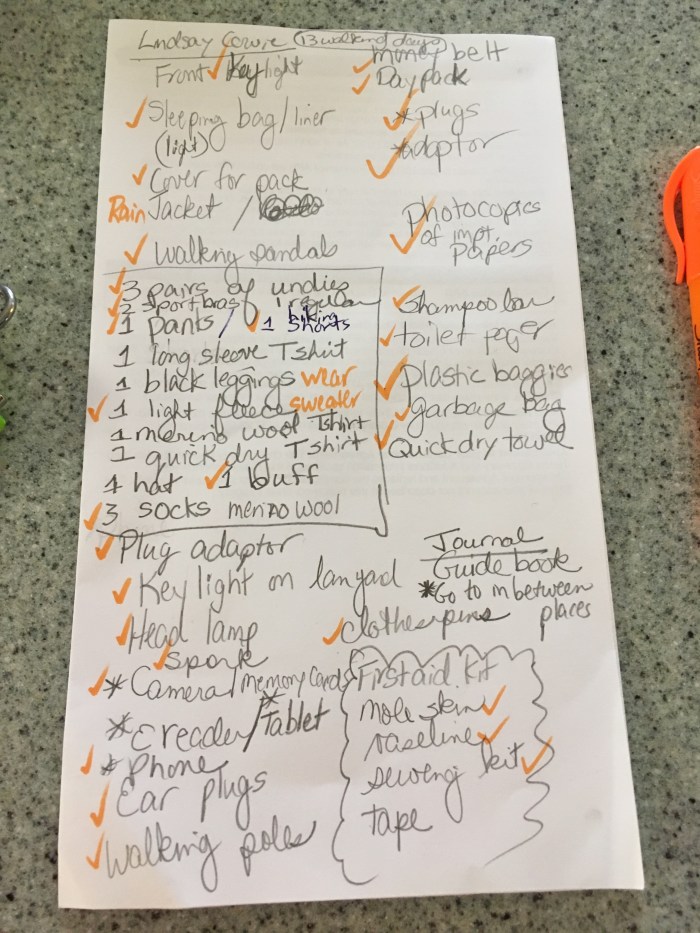 Lindsay Cowie (13 walking days)
Front Key light
✓ Sleeping bag/liner
(light)
✓ Cover for pack
Rain Jacket /
✓ Walking sandals
✓ money belt
✓ Day pack
✓ *plugs
✓ *adaptor
✓ Photocopies
of impt.
Papers
✓ 3 pairs of undies
✓ 2 sport bras 1 regular
✓ 1 pants / ✓ 1 biking shorts
1 long sleeve Tshirt
1 black leggings wear
✓ 1 light fleece sweater
1 merino wool Tshirt
1 quick dry Tshirt
1 hat ✓ 1 buff
✓ 3 socks merino wool
✓ Shampoo bar
✓ toilet paper
✓ Plastic baggies
✓ garbage bag
✓ Quick dry towel
✓ Plug adaptor
✓ Key light on lanyard
✓ Head lamp
✓ spork
✓ * Camera/memory cards
* E reader/Tablet
✓ * phone
✓ Ear plugs
✓ walking poles
Journal
Guide book
*Go to in between
places
✓ clothespins
First aid kit
mole skin ✓
vaseline ✓
sewing kit ✓
tape